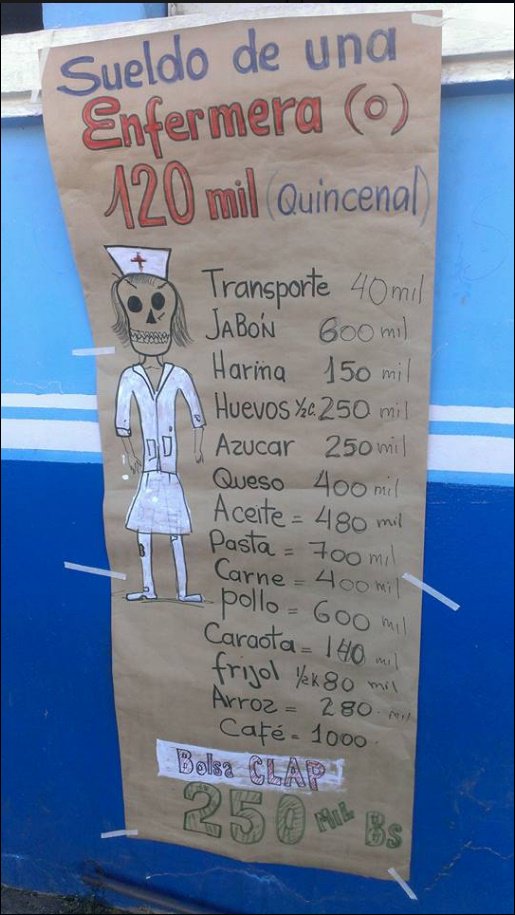 Sueldo de una
Enfermera (o)
120 mil (Quincenal)
Transporte 40 mil
JABÓN 600 mil
Harina 150 mil
Huevos ½c. 250 mil
Azucar 250 mil
Queso 400 mil
Aceite = 480 mil
Pasta = 700 mil
Carne = 400 mil
pollo = 600 mil
Caraota = 140 mil
frijol ½ek 80 mil
Arroz = 280. mil
Café = 1000.
Bolsa CLAP
250 MIL Bs